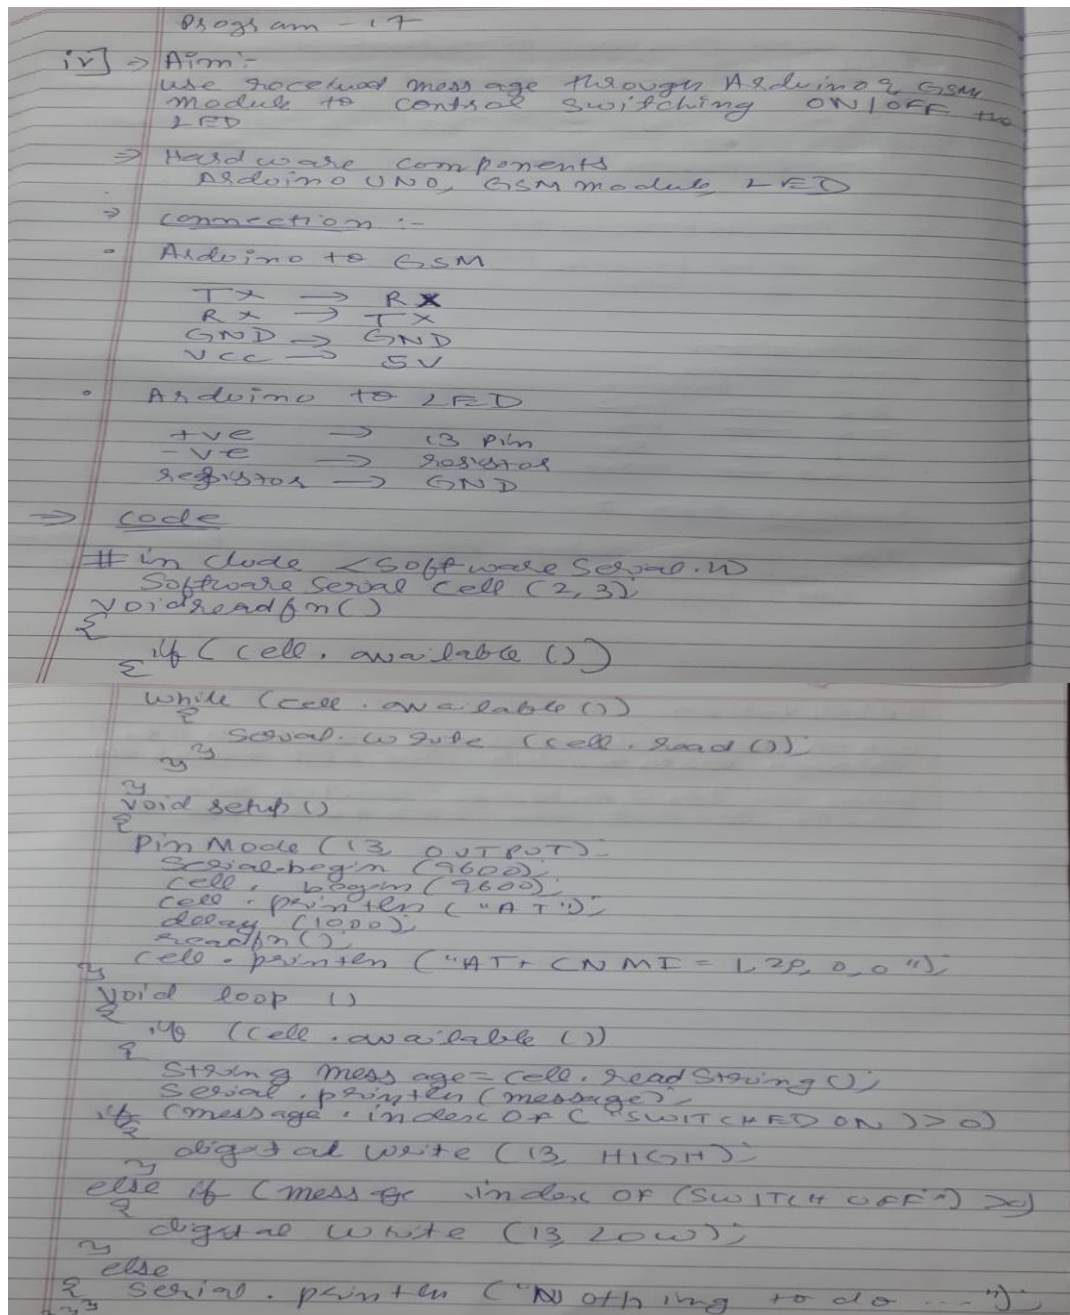 Program - 17
iv] ⇒ Aim :-
use received message through Arduino & GSM
module to control switching ON/OFF the
LED
⇒ Hardware components
Arduino UNO, GSM module, LED
⇒ connection :-
• Arduino to GSM
TX → RX
RX → TX
GND → GND
VCC → 5V
• Arduino to LED
+ve → 13 Pin
-ve → resistor
resistor → GND
⇒ code
# include <Software Serial.h>
Software Serial cell (2,3);
void readfn()
{
if (cell. available ())
{
while (cell. available ())
{
Serial. write (cell. read ());
}
}
}
void setup ()
{
Pin Mode (13, OUTPUT);
Serial.begin (9600);
cell. begin (9600);
cell. println ("AT");
delay (1000);
readfn();
cell. println ("AT+ CNMI = 1, 2, 0, 0");
}
void loop ()
{
if (cell. available ())
{
String message = cell. readString ();
Serial. println (message);
if (message. index Of ("SWITCHED ON) > 0)
{
digital write (13, HIGH);
}
else if (message .index OF (SWITCH OFF") > 0)
{
digital write (13, LOW);
}
else
{ Serial. println ("Nothing to do ...");
}}}